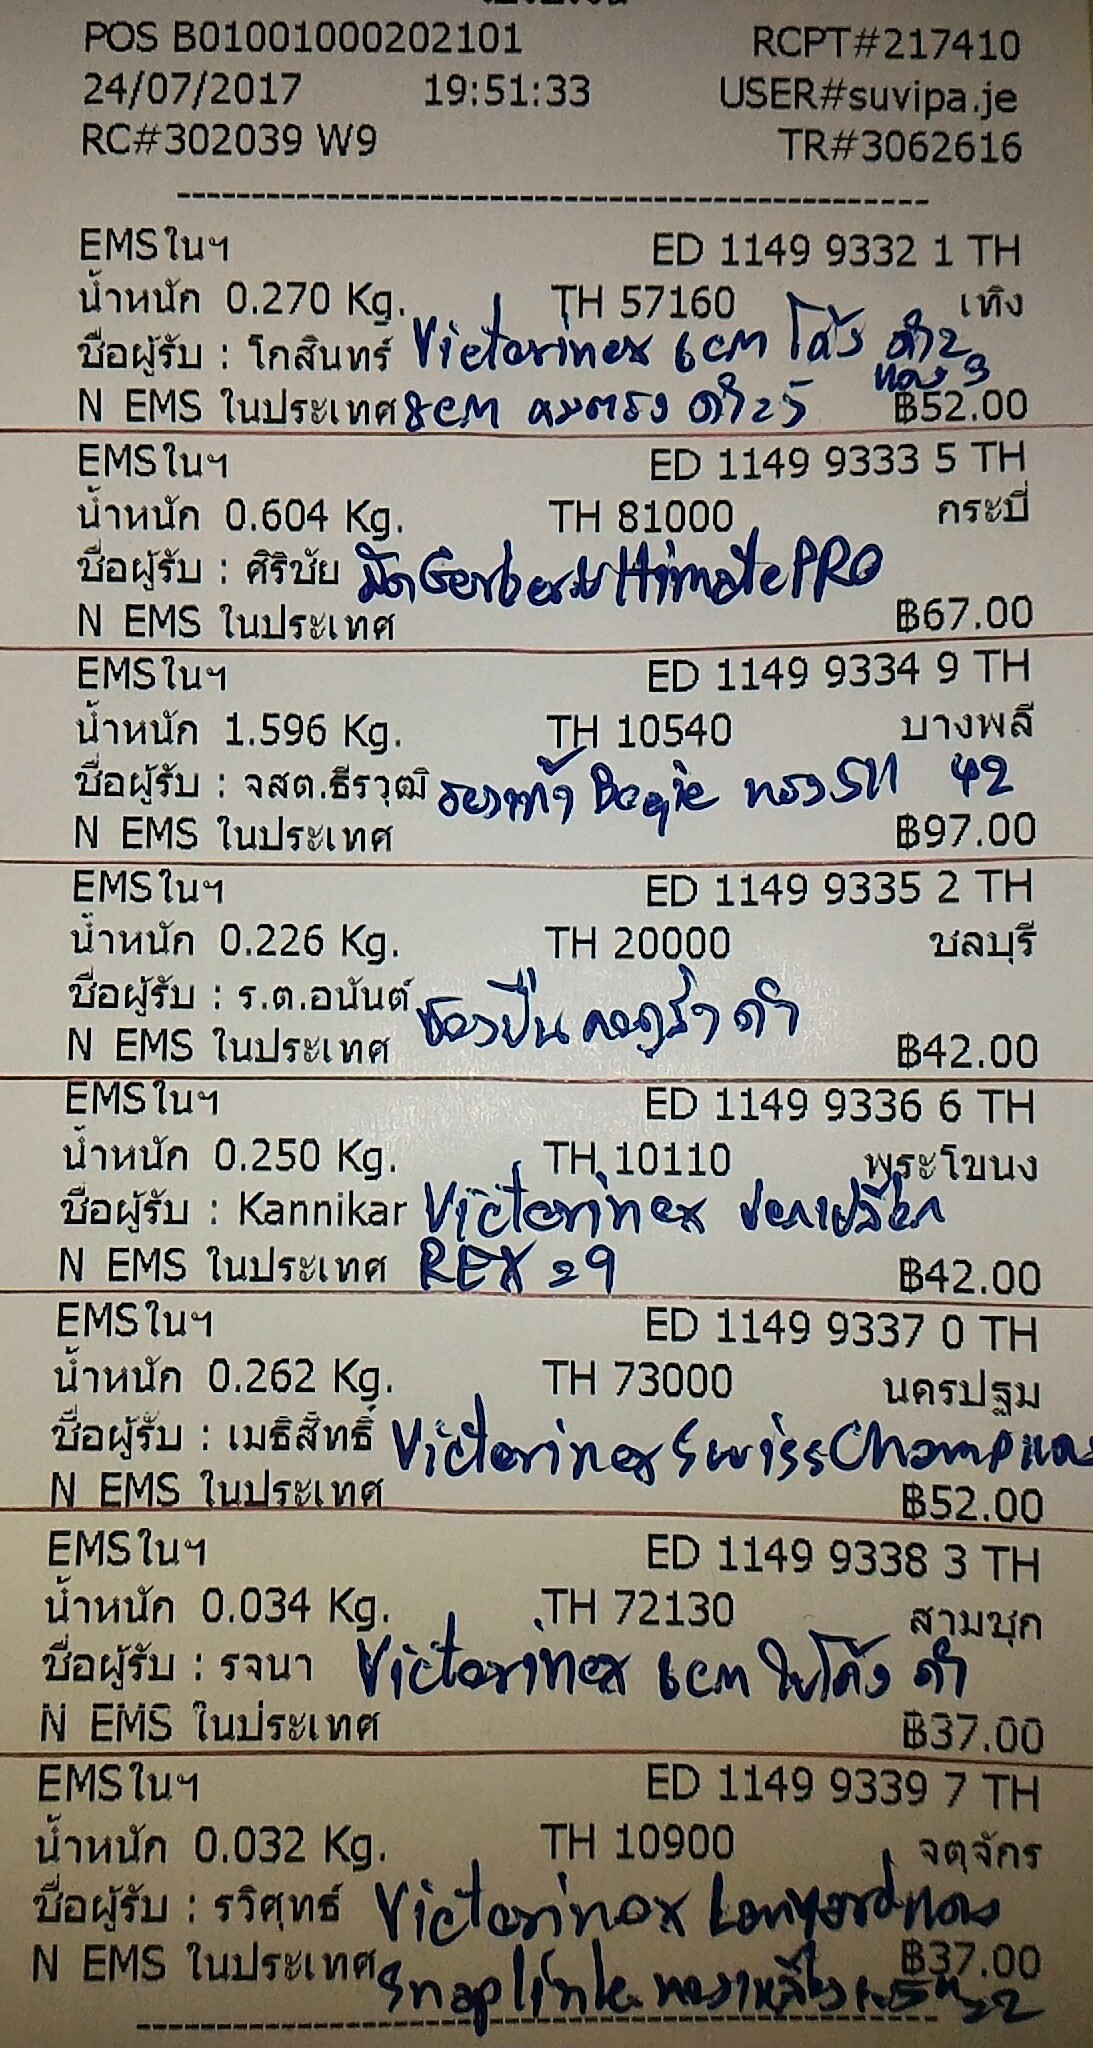 POS B01001000202101 RCPT#217410
24/07/2017 19:51:33 USER#suvipa.je
RC#302039 W9 TR#3062616
EMSในฯ ED 1149 9332 1 TH
น้ำหนัก 0.270 Kg. TH 57160 เทิง
ชื่อผู้รับ : โกสินทร์ Victorinox 6cm โค้ง ดำ2
แดง 3
N EMS ในประเทศ 8cm ฿52.00
EMSในฯ ED 1149 9333 5 TH
น้ำหนัก 0.604 Kg. TH 81000 กระบี่
ชื่อผู้รับ : ศิริชัย มีด Gerber Ultimate PRO
N EMS ในประเทศ ฿67.00
EMSในฯ ED 1149 9334 9 TH
น้ำหนัก 1.596 Kg. TH 10540 บางพลี
ชื่อผู้รับ : จสต.ธีรวุฒิ รองเท้า ทรง 511 42
N EMS ในประเทศ ฿97.00
EMSในฯ ED 1149 9335 2 TH
น้ำหนัก 0.226 Kg. TH 20000 ชลบุรี
ชื่อผู้รับ : ร.ต.อนันต์ ซองปืน ดำ
N EMS ในประเทศ ฿42.00
EMSในฯ ED 1149 9336 6 TH
น้ำหนัก 0.250 Kg. TH 10110 พระโขนง
ชื่อผู้รับ : Kannikar Victorinox ปอกเปลือก
N EMS ในประเทศ REX =9 ฿42.00
EMSในฯ ED 1149 9337 0 TH
น้ำหนัก 0.262 Kg. TH 73000 นครปฐม
ชื่อผู้รับ : เมธิสิทธิ์ Victorinox SwissChamp แดง
N EMS ในประเทศ ฿52.00
EMSในฯ ED 1149 9338 3 TH
น้ำหนัก 0.034 Kg. TH 72130 สามชุก
ชื่อผู้รับ : รจนา Victorinox 6cm ใบโค้ง ดำ
N EMS ในประเทศ ฿37.00
EMSในฯ ED 1149 9339 7 TH
น้ำหนัก 0.032 Kg. TH 10900 จตุจักร
ชื่อผู้รับ : รวิศุทธ์ Victorinox Lanyard แดง
N EMS ในประเทศ ฿37.00
Snaplink ทองเหลือง